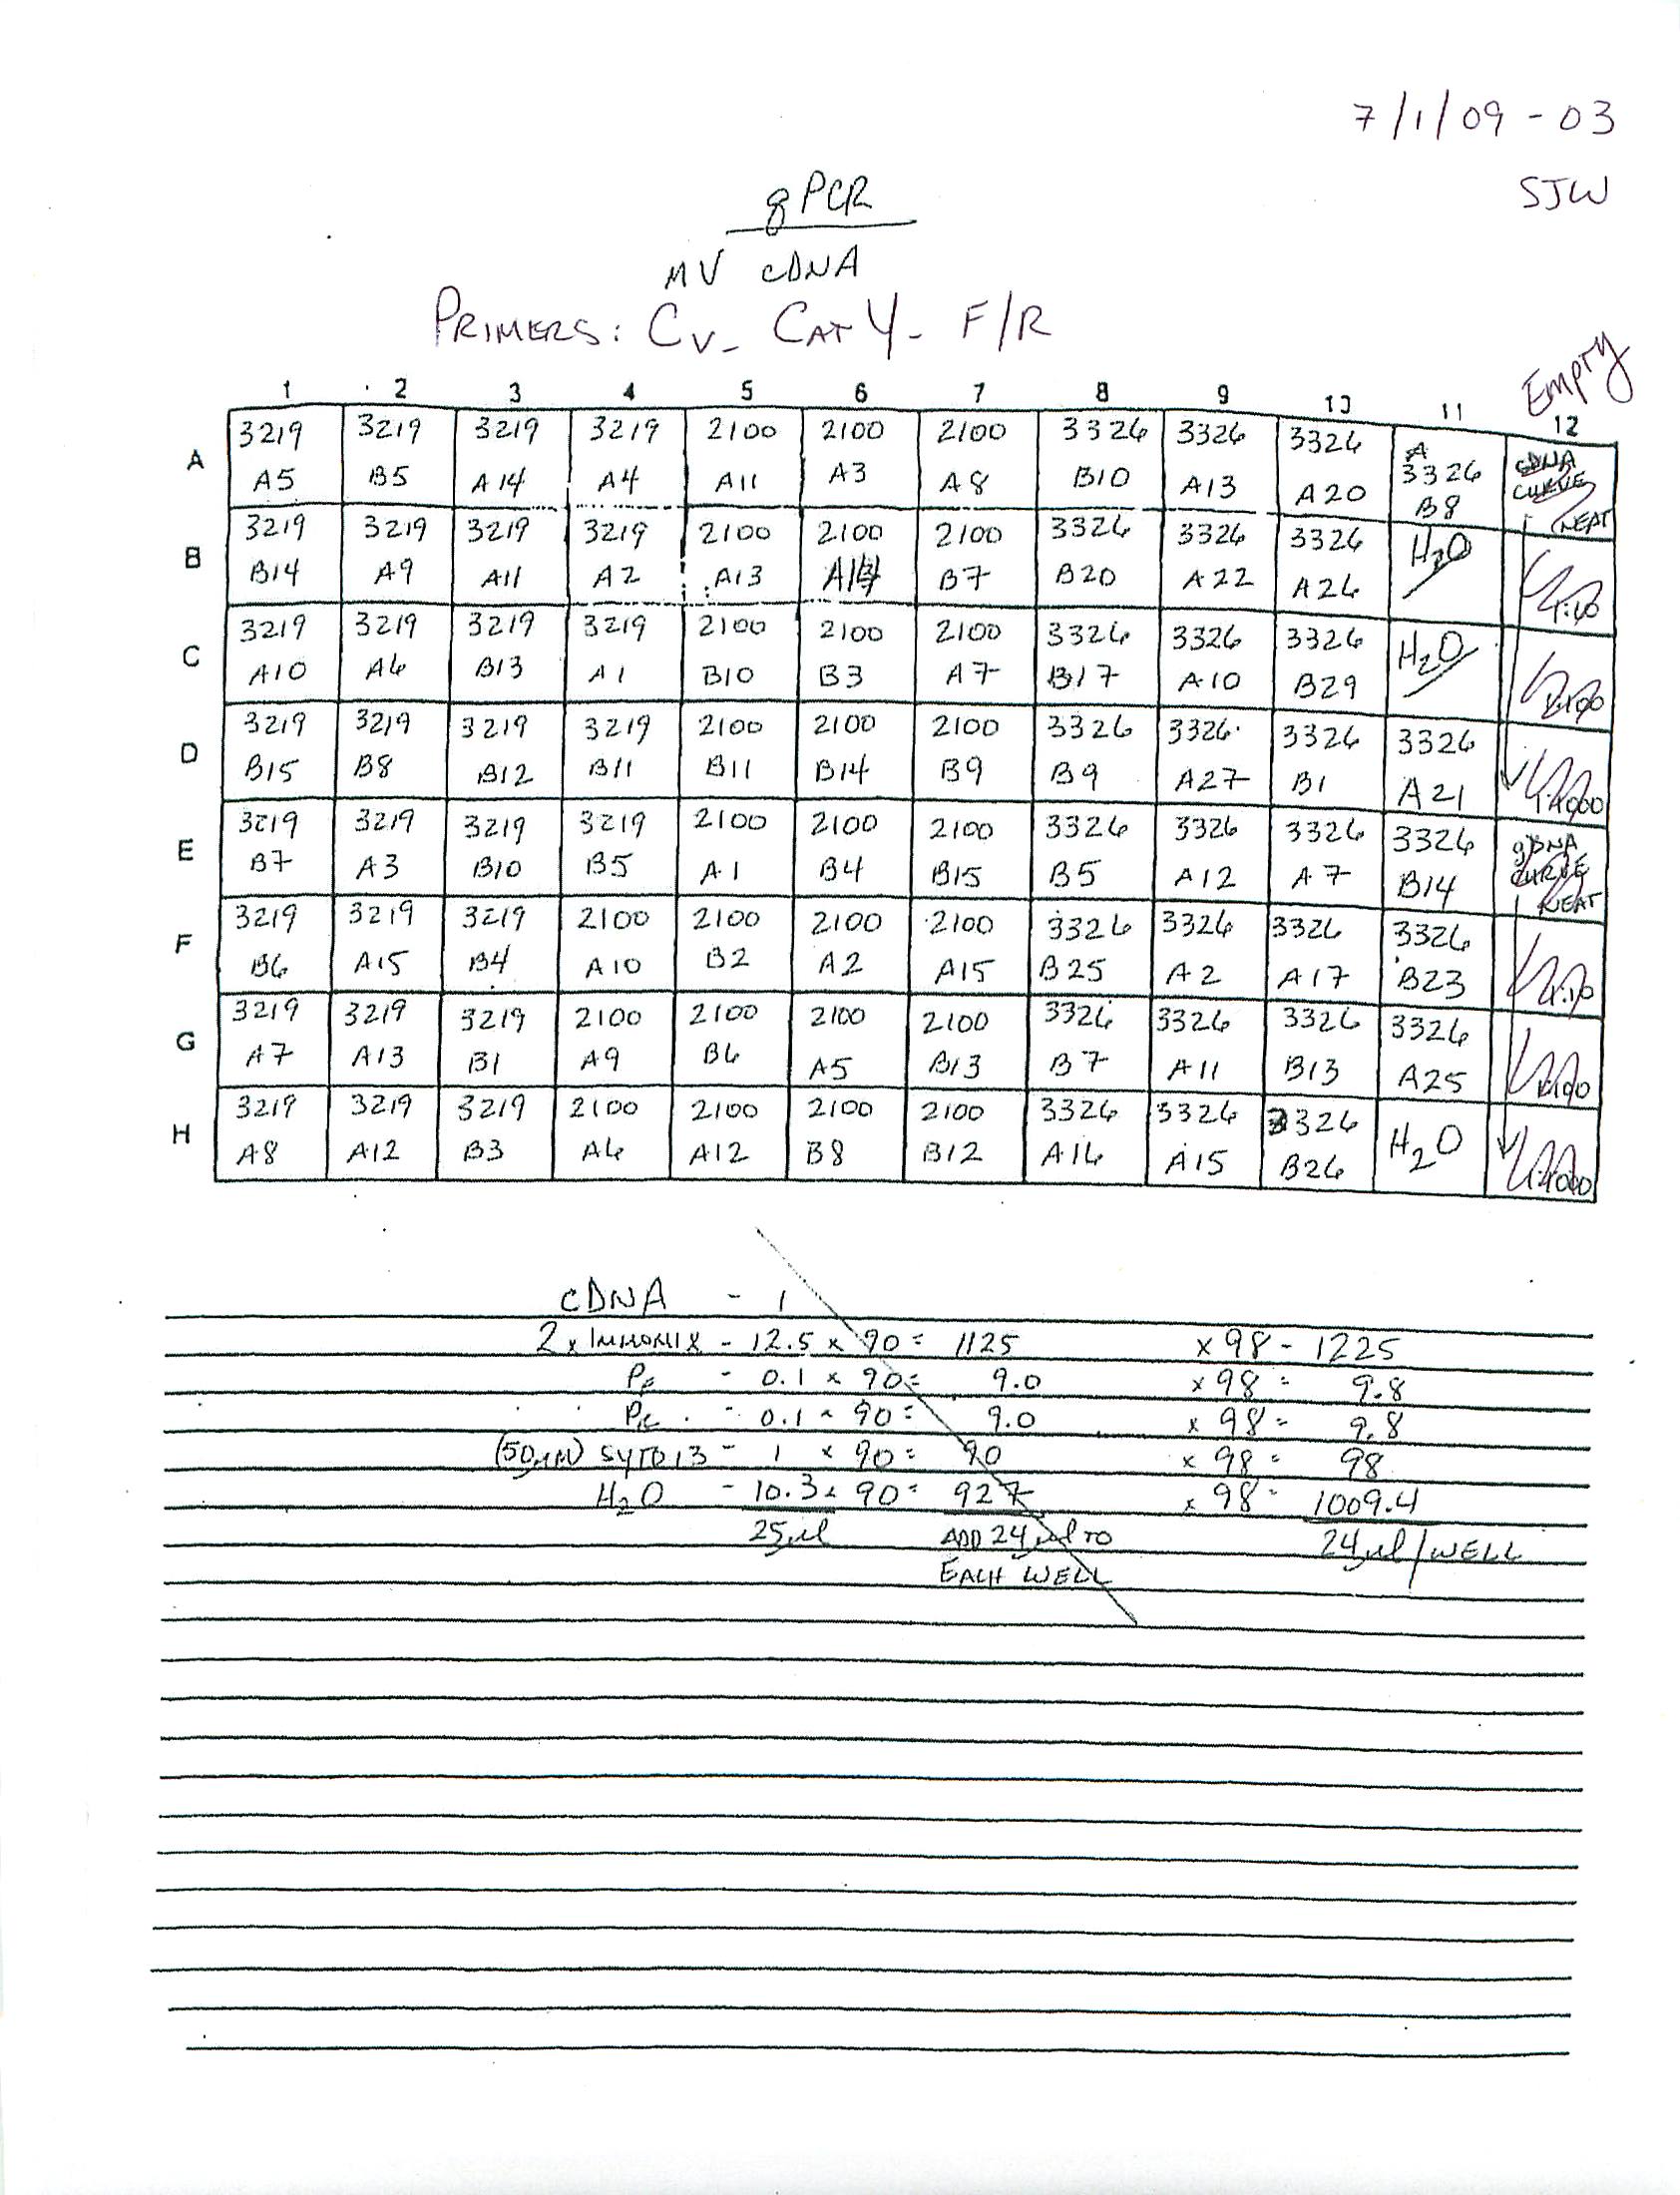 7/1/09 - 03
SJW
qPCR
MV cDNA
PRIMERS: CV_ CAT Y_ F/R
Empty
1 2 3 4 5 6 7 8 9 10 11 12
A 3219 3219 3219 3219 2100 2100 2100 3326 3326 3326 A 3326 cDNA CURVE
A5 B5 A14 A4 A11 A3 A8 B10 A13 A20 B8 NEAT
B 3219 3219 3219 3219 2100 2100 2100 3326 3326 3326 H2O
B14 A9 A11 A2 A13 B7 B20 A22 A26 1:10
C 3219 3219 3219 3219 2100 2100 2100 3326 3326 3326 H2O
A10 A6 B13 A1 B10 B3 A7 B17 A10 B29 1:100
D 3219 3219 3219 3219 2100 2100 2100 3326 3326 3326 3326
B15 B8 B12 B11 B11 B14 B9 B9 A27 B1 A21 1:1000
E 3219 3219 3219 3219 2100 2100 2100 3326 3326 3326 3326 gDNA CURVE
B7 A3 B10 B5 A1 B4 B15 B5 A12 A7 B14 NEAT
F 3219 3219 3219 2100 2100 2100 2100 3326 3326 3326 3326
B6 A15 B4 A10 B2 A2 A15 B25 A2 A17 B23 1:10
G 3219 3219 3219 2100 2100 2100 2100 3326 3326 3326 3326
A7 A13 B1 A9 B6 A5 B13 B7 A11 B13 A25 1:100
H 3219 3219 3219 2100 2100 2100 2100 3326 3326 3326 H2O
A8 A12 B3 A6 A12 B8 B12 A16 A15 B26 1:1000
cDNA - 1
2x IMMOMIX - 12.5 x 90 = 1125 x 98 - 1225
PF - 0.1 x 90 = 9.0 x 98 = 9.8
PR - 0.1 x 90 = 9.0 x 98 = 9.8
(50µM) SYTO 13 - 1 x 90 = 90 x 98 = 98
H2O - 10.3 x 90 = 927 x 98 = 1009.4
25µl ADD 24µl TO 24µl/WELL
EACH WELL